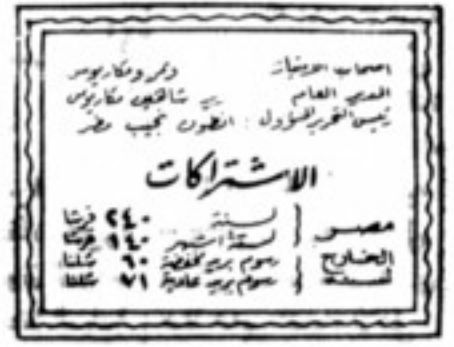 اصحاب الامتياز نمر ومكاريوس
المدير العام شاهين مكاريوس
رئيس التحرير المسؤول : انطون نجيب مطر
الاشتراكات
مصر لسنة ٢٤٠ قرشا
لستة اشهر ١٤٠ قرشا
الخارج رسوم بريد مخفضة ٦٠ شلنا
لسنة رسوم بريد عادية ٧١ شلنا